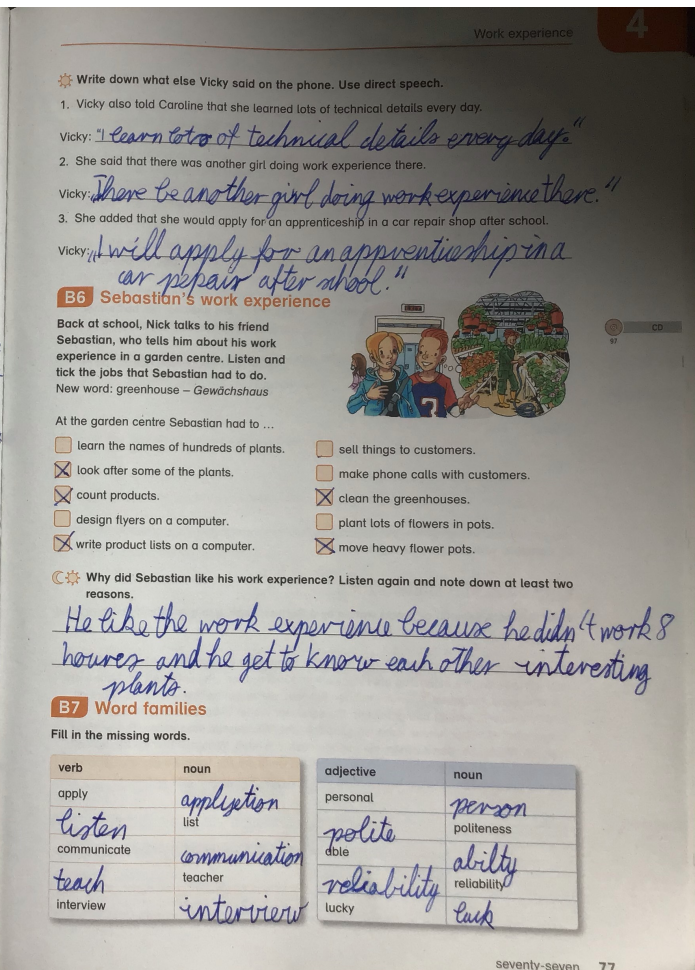 Work experience
4
Write down what else Vicky said on the phone. Use direct speech.
1. Vicky also told Caroline that she learned lots of technical details every day.
Vicky: "I learn lots of technical details every day."
2. She said that there was another girl doing work experience there.
Vicky: „There be another girl doing work experience there."
3. She added that she would apply for an apprenticeship in a car repair shop after school.
Vicky: „I will apply for an apprenticeship in a
car repair after school."
B6 Sebastian's work experience
Back at school, Nick talks to his friend
Sebastian, who tells him about his work
experience in a garden centre. Listen and
tick the jobs that Sebastian had to do.
New word: greenhouse – Gewächshaus
CD
97
At the garden centre Sebastian had to ...
learn the names of hundreds of plants.
look after some of the plants.
count products.
design flyers on a computer.
write product lists on a computer.
sell things to customers.
make phone calls with customers.
clean the greenhouses.
plant lots of flowers in pots.
move heavy flower pots.
Why did Sebastian like his work experience? Listen again and note down at least two
reasons.
He like the work experience because he didn't work 8
houres and he get to know each other interesting
plants.
B7 Word families
Fill in the missing words.
verb noun
apply applyetion
listen list
communicate communication
teach teacher
interview interview
adjective noun
personal person
polite politeness
able abilty
reliability reliability
lucky luck
seventy-seven 77